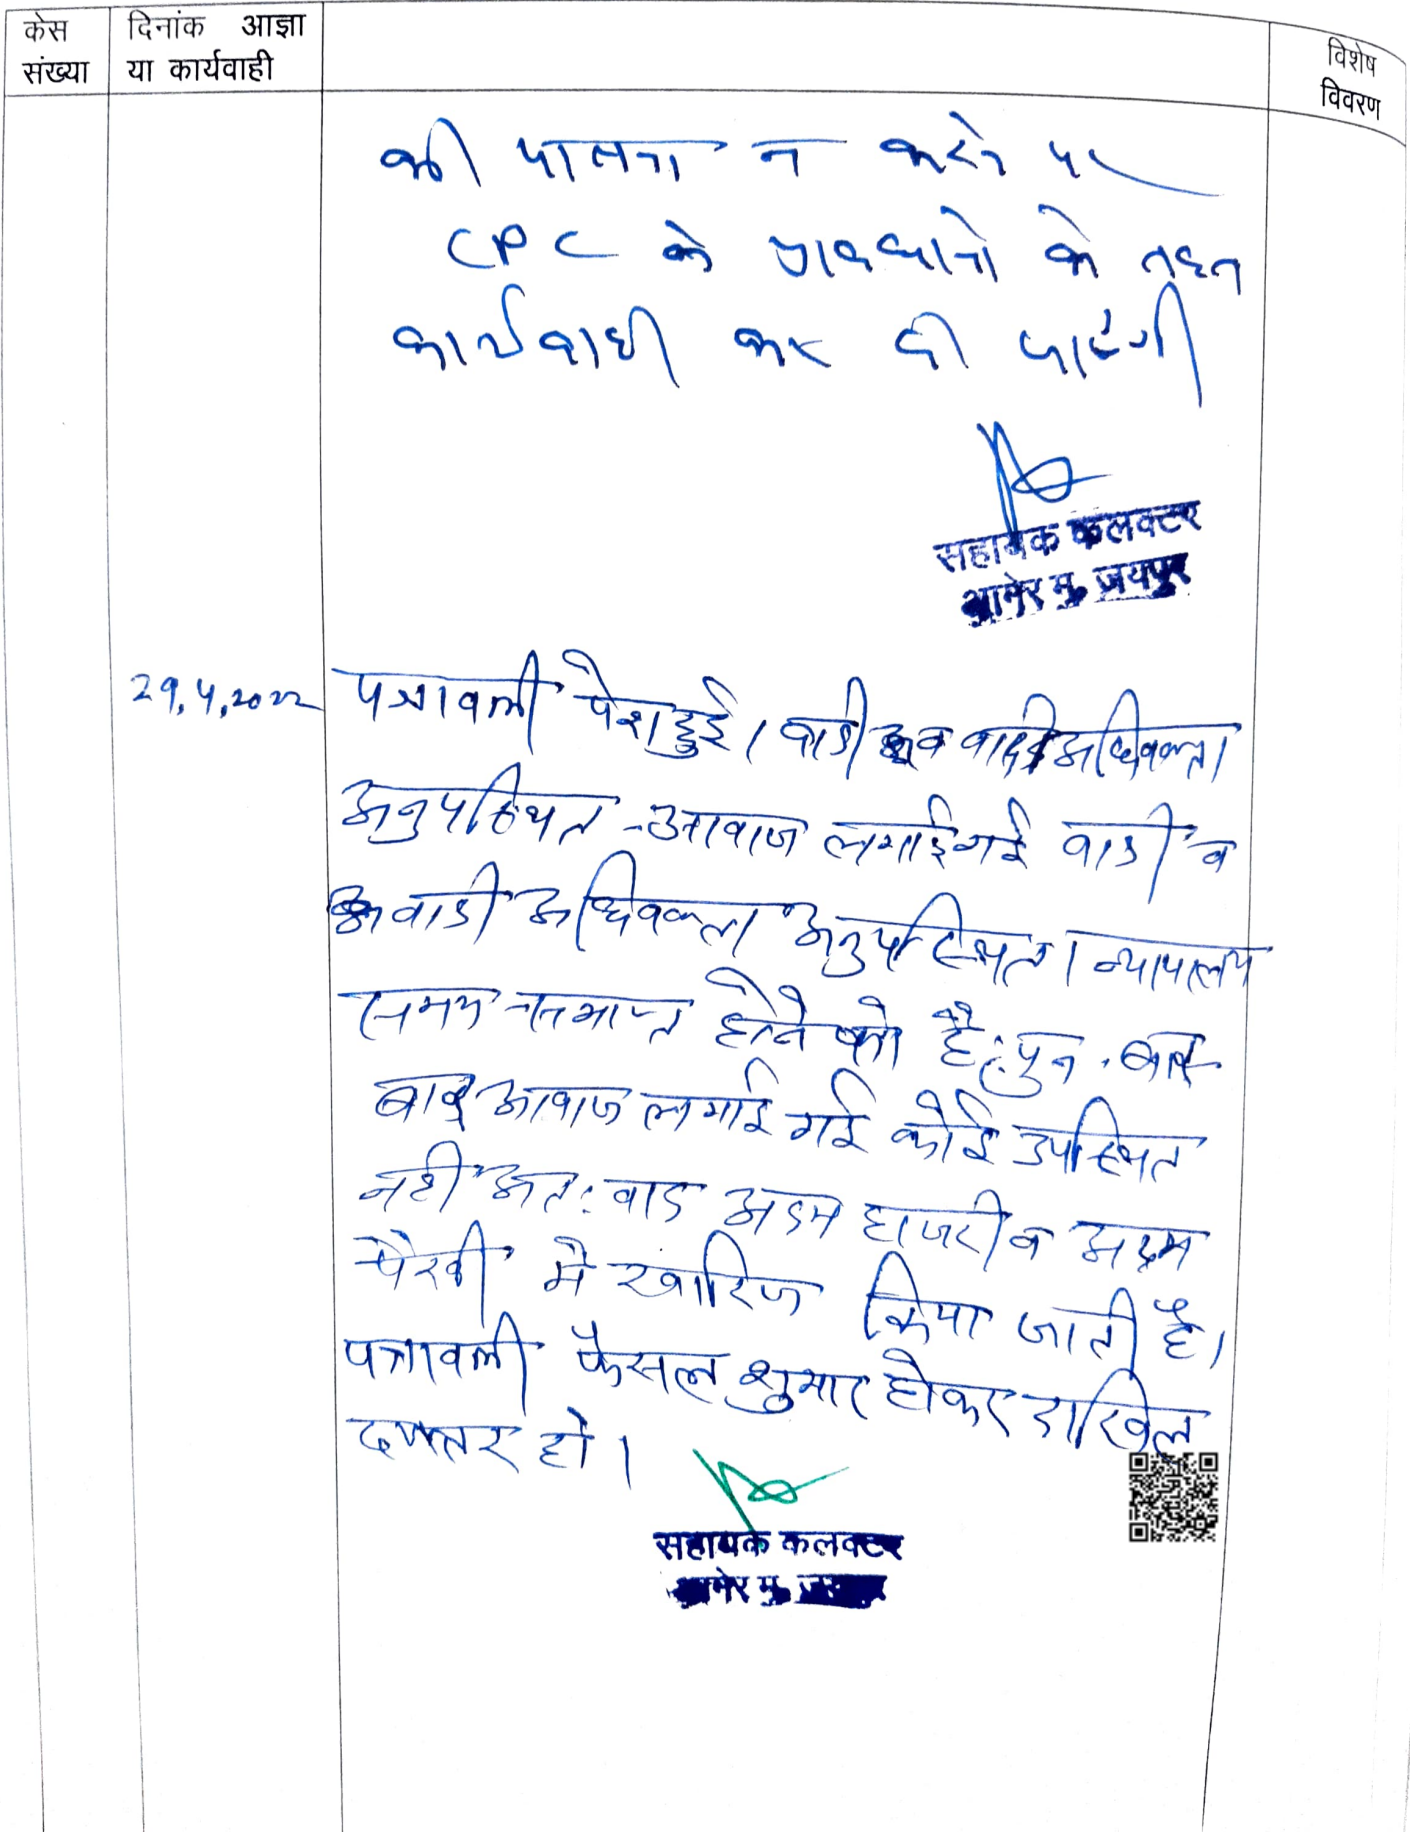 केस
संख्या
दिनांक आज्ञा
या कार्यवाही
विशेष
विवरण
की पालना न करने पर
CPC के प्रावधानो के तहत
कार्यवाही कर दी जाएगी
सहायक कलक्टर
आमेर मु. जयपुर
29.4.2022
पत्रावली पेश हुई। वादी व वादी अधिवक्ता
अनुपस्थित आवाज लगाई गई वादी व
वादी अधिवक्ता अनुपस्थित। न्यायालय
समय समाप्त होने को है, पुन. बार
बार आवाज लगाई गई कोई उपस्थित
नही अत: वाद अदम हाजरी व अदम
पैरवी मे खारिज किया जाती है।
पत्रावली फैसल शुमार होकर दाखिल
दफ्तर हो।
सहायक कलक्टर
आमेर मु.